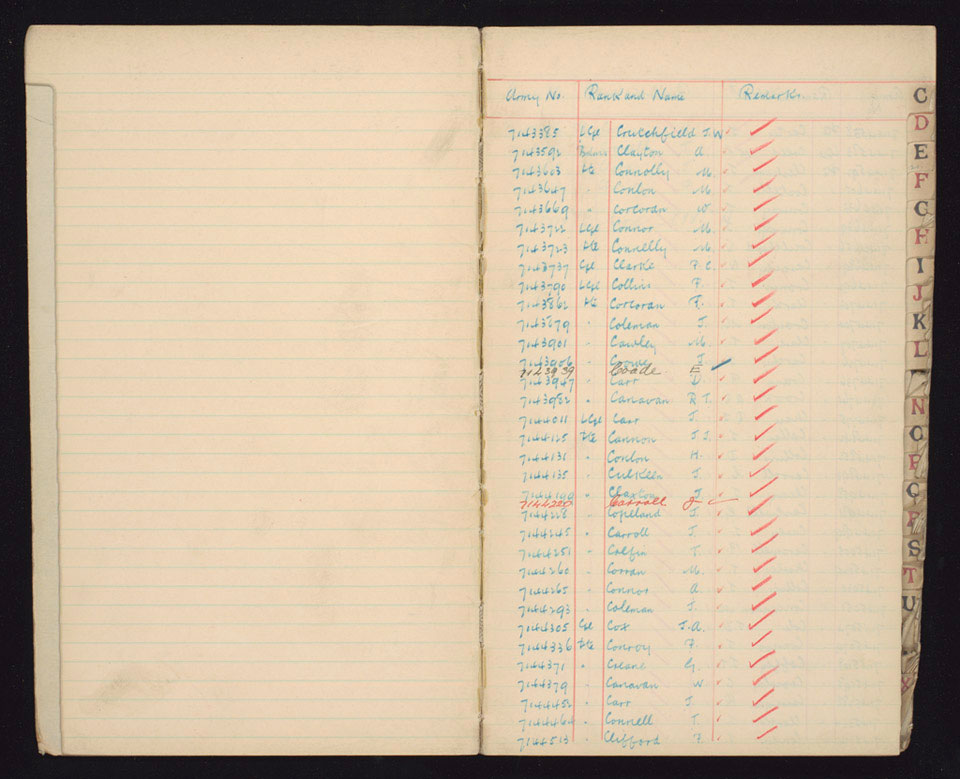 Army No. Rank and Name Remarks.
7143385 LCpl Crutchfield J.W
7143592 Clayton A.
7143603 Pte Connolly M.
7143647 " Conlon M.
7143669 " Corcoran W.
7143722 LCpl Connor M.
7143723 Pte Connelly M.
7143737 Cpl Clarke F.C.
7143790 LCpl Collins P.
7143862 Pte Corcoran F.
7143879 " Coleman J.
7143901 " Cawley M.
7143906 " Crowe J.
7143939 Coade E
7143947 " Carr D.
7143952 " Canavan R T.
7144011 LCpl Carr J.
7144125 Pte Cannon J J.
7144131 " Conlon H.
7144135 " Culkeen J.
7144199 " Claxton J
7144220 Carroll J C
7144228 " Copeland J.
7144245 " Carroll J.
7144251 " Colfin T.
7144260 " Corran M.
7144265 " Connor A.
7144293 " Coleman J.
7144305 Cpl Cox J.A.
7144336 Pte Conroy P.
7144371 " Coleman G.
7144379 " Canavan W
7144452 " Carr J.
7144464 " Connell T.
7144513 " Clifford P.
C
D
E
F
G
H
I
J
K
L
N
O
P
Q
R
S
T
U
X